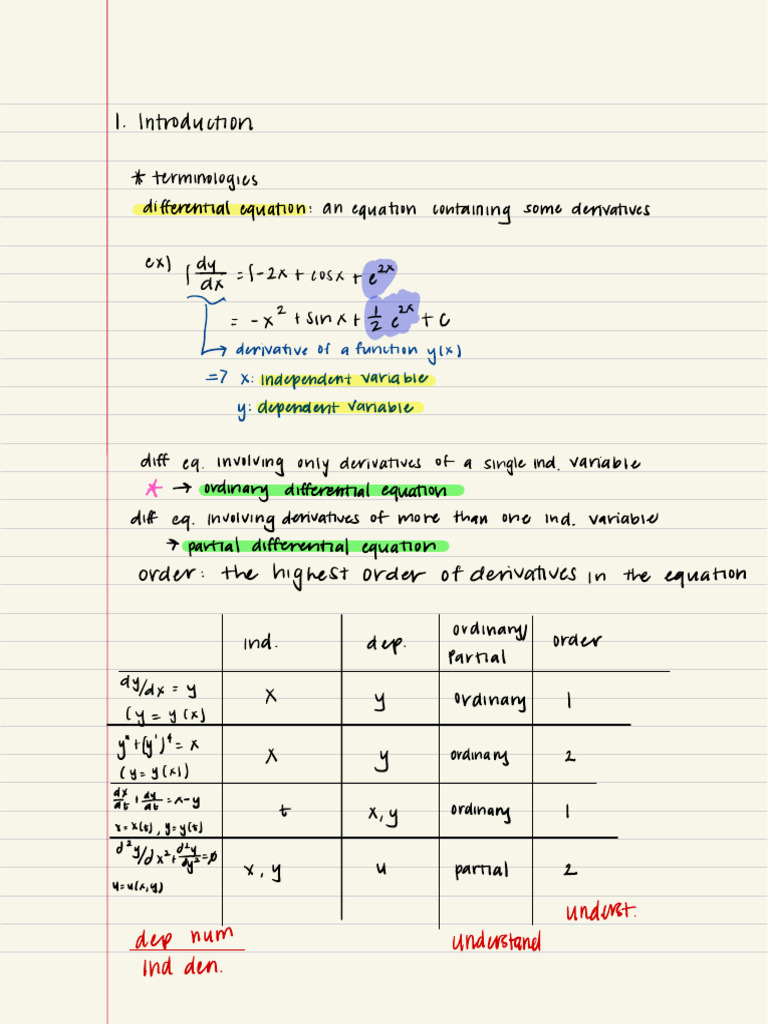 1. Introduction
* terminologies
differential equation: an equation containing some derivatives
ex) ∫ dy/dx = ∫ -2x + cosx + e^2x
= -x^2 + sinx + 1/2 e^2x + C
→ derivative of a function y(x)
=> x: independent variable
y: dependent variable
diff eq. involving only derivatives of a single ind. variable
* → ordinary differential equation
diff eq. involving derivatives of more than one ind. variable
→ partial differential equation
order: the highest order of derivatives in the equation
ind. dep. ordinary/ partial order
dy/dx = y x y ordinary 1
(y = y(x)
y" + (y')^4 = x x y ordinary 2
(y = y(x))
dx/dt + dy/dt = x-y t x, y ordinary 1
x = x(t), y = y(t)
d^2y/dx^2 + d^2y/dy^2 = 0 x, y u partial 2
u = u(x,y)
underst.
dep num understand
ind den.